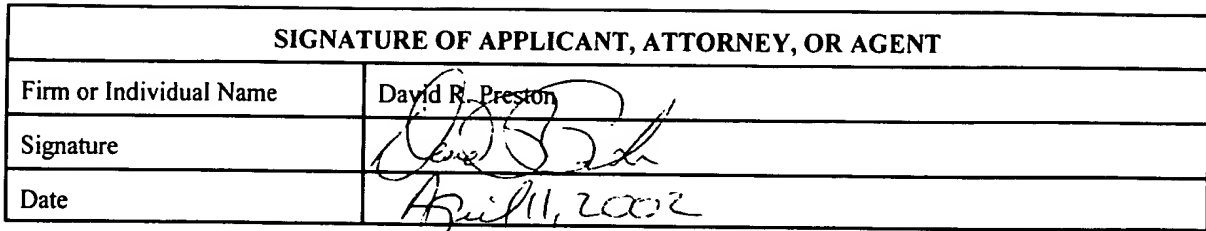 SIGNATURE OF APPLICANT, ATTORNEY, OR AGENT
Firm or Individual Name David R. Preston
Signature
Date April 11, 2002